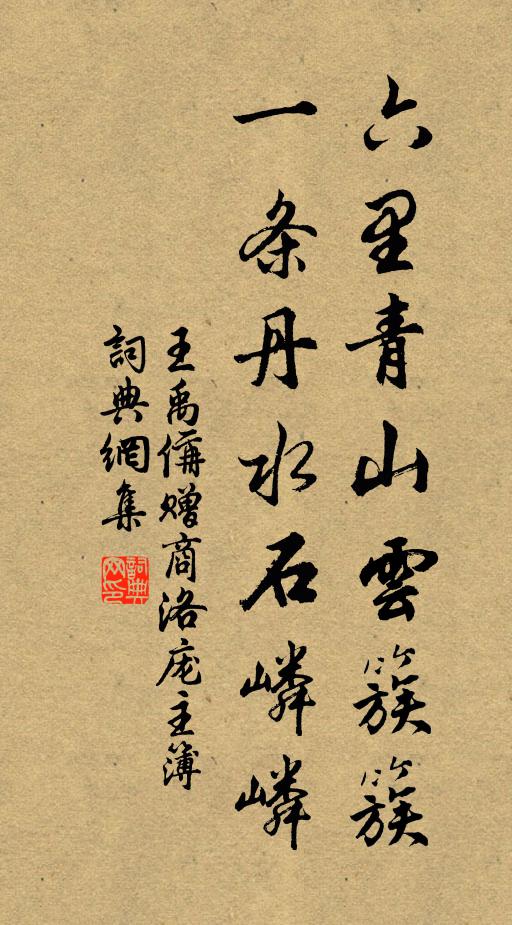 六里青山雲簇簇
一条丹水石嶙嶙
王禹偁贈商洛庞主簿
詞典網集
詞典网印